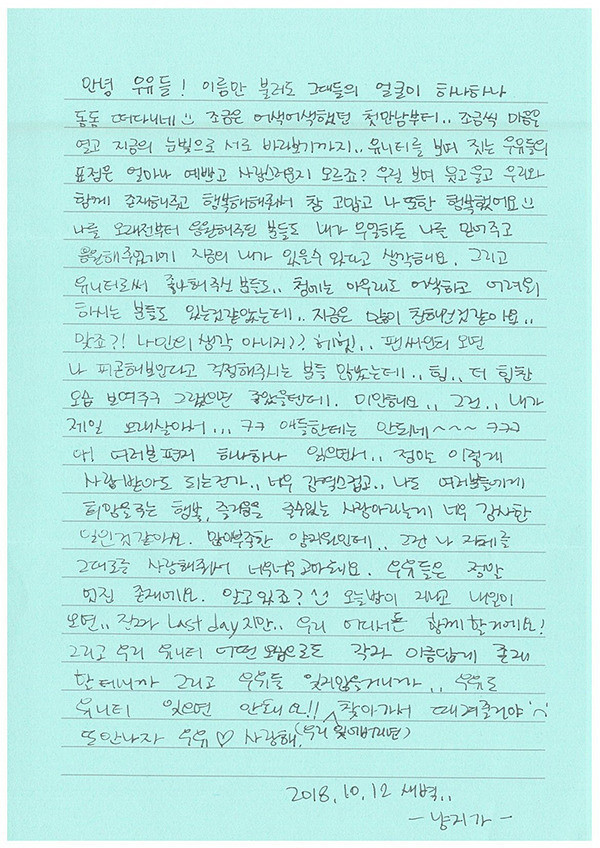 안녕 우유들! 이름만 불러도 그대들의 얼굴이 하나하나
동동 떠다니네 조금은 어색어색했던 첫만남부터.. 조금씩 마음을
열고 지금의 눈빛으로 서로 바라보기까지.. 유니티를 보며 짓는 우유들의
표정은 얼마나 예쁘고 사랑스러운지 모르죠? 우릴 보며 웃고 울고 우리와
함께 존재해주고 행복해해줘서 참 고맙고 나 또한 행복했어요
나를 오래전부터 응원해주던 분들도 내가 무얼하든 나를 믿어주고
응원해주었기에 지금의 내가 있을수 있다고 생각해요. 그리고
유니티로써 좋아해주신 분들도.. 첨에는 아무래도 어색하고 어려워
하시는 분들도 있는것같았는데.. 지금은 많이 친해진것같아요..
맞죠?! 나만의 생각 아니지?? 헤헷.. 팬싸인회 오면
나 피곤해보인다고 걱정해주시는 분들 많았는데.. 힝.. 더 힘찬
모습 보여주구 그랬으면 좋았을텐데. 미안해요.. 그건.. 내가
제일 오래살아서... ㅋㅋ 애들한테는 안되네~~~ ㅋㅋㅋ
아! 여러분 편지 하나하나 읽으면서.. 정말 이렇게
사랑받아도 되는건가.. 너무 감격스럽고.. 나도 여러분들에게
희망을 주는 행복, 즐거움을 줄수있는 사람이라는게 너무 감사한
일인것같아요. 많이부족한 양지원인데.. 그런 나 자체를
그대로를 사랑해줘서 너무너무 고마워요. 우유들은 정말
멋진 존재에요. 알고있죠? 오늘밤이 지나고 내일이
오면.. 진짜 Last day지만.. 우리 어디서든 함께 할거에요!
그리고 우리 유니티 어떤 모습으로든 각자 아름답게 존재
할테니까 그리고 우유들 잊지않을거니까.. 우유도
유니티 잊으면 안돼요!! 찾아가서 때려줄거야
또 만나자 우유♡ 사랑해. (우리 잊어버리면)
2018.10.12 새벽..
-냥지가-